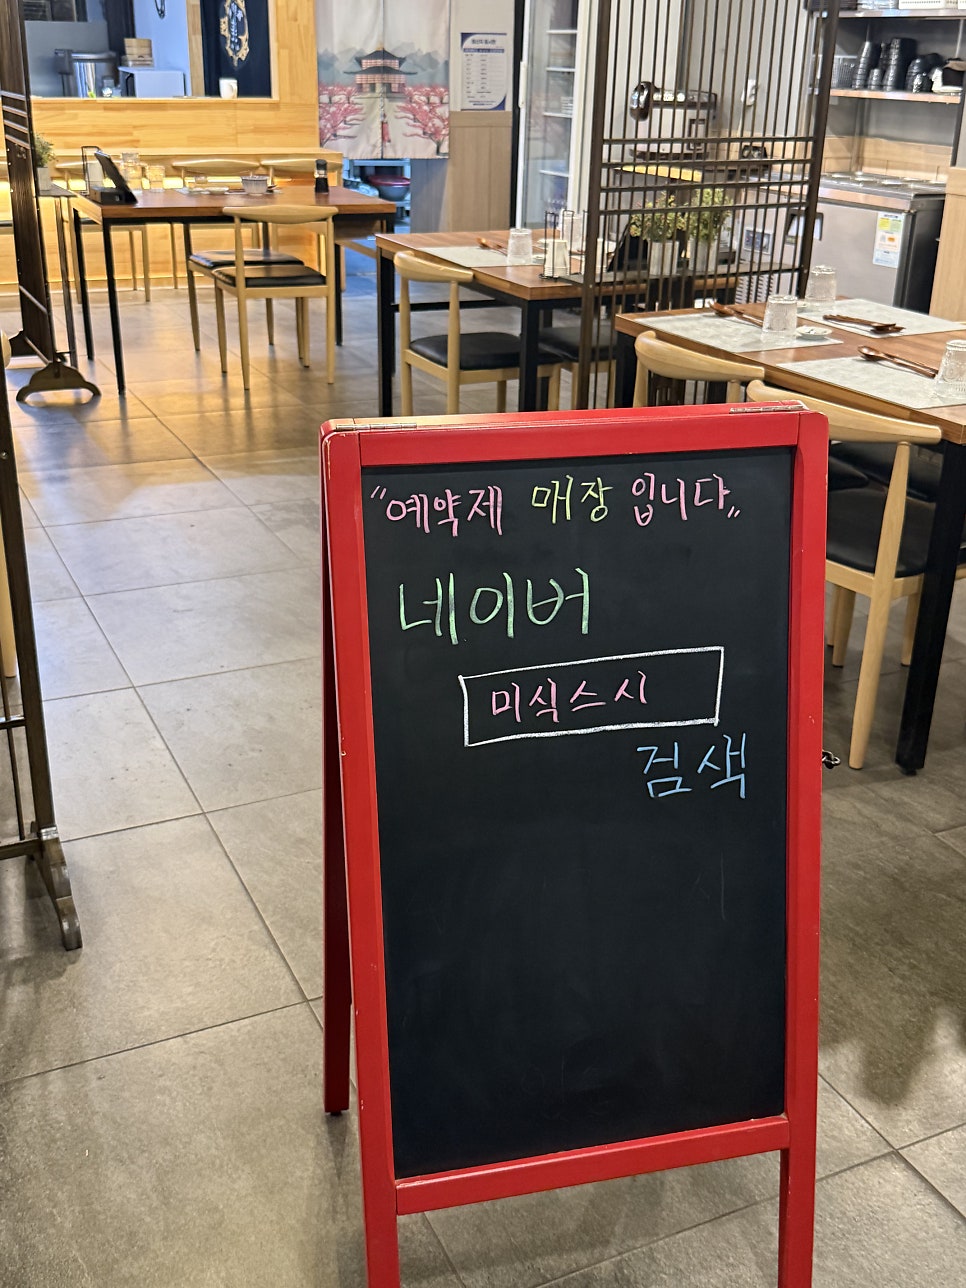 "예약제 매장 입니다„
네이버
미식스시
검색